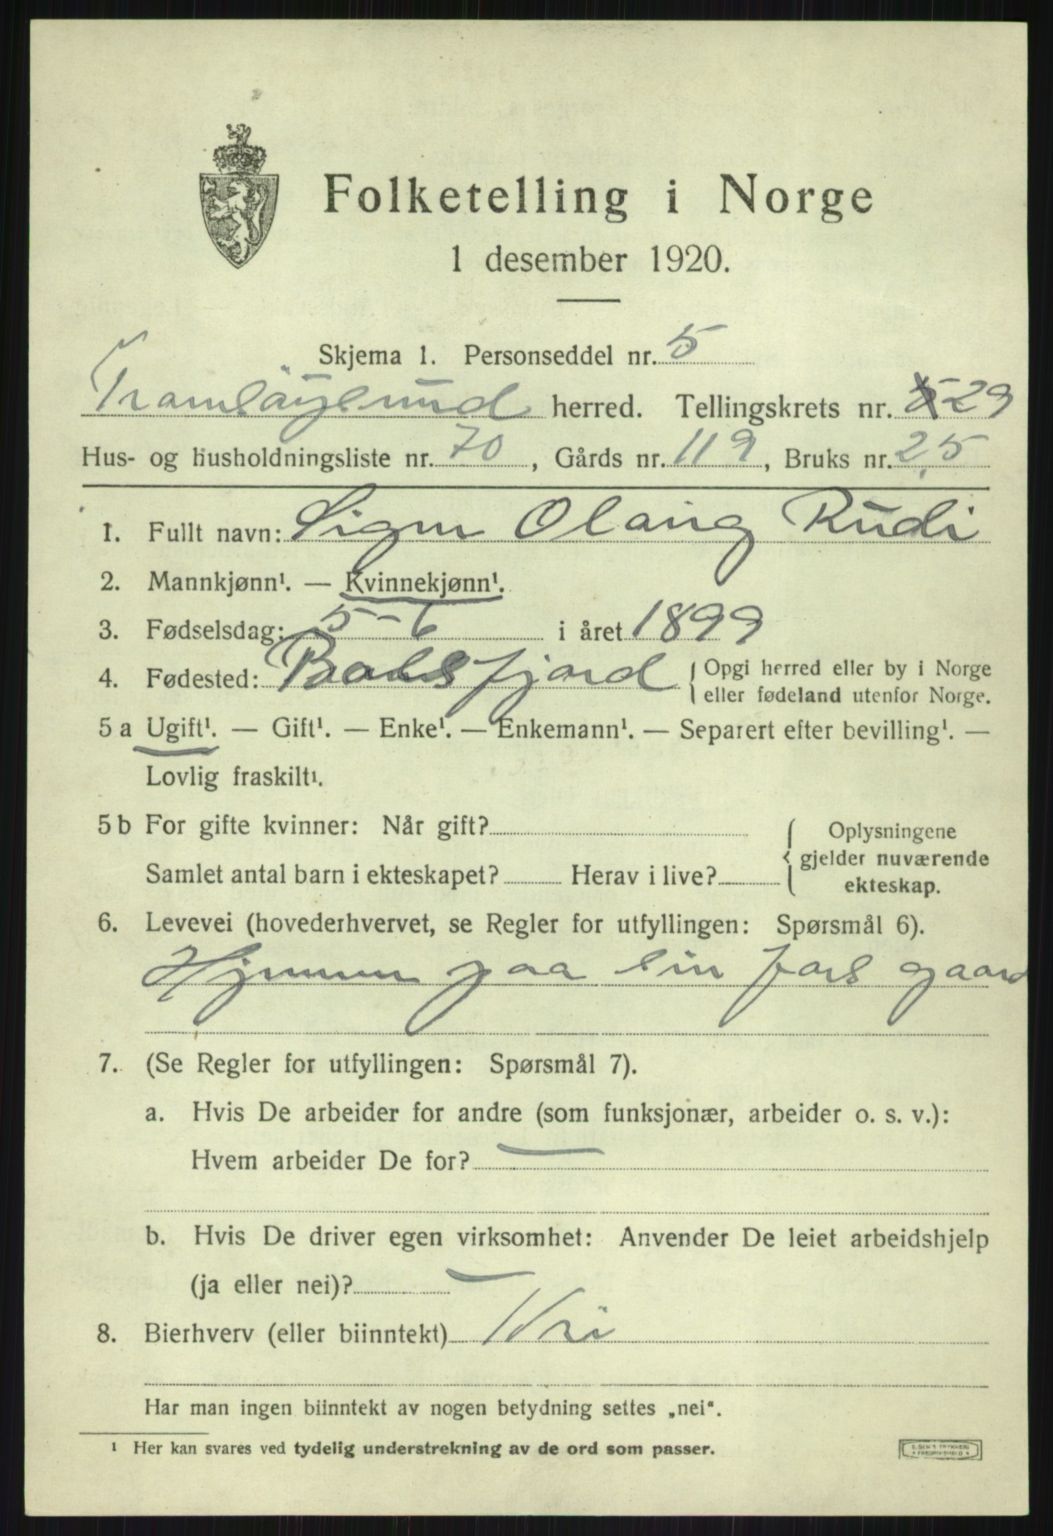 Folketelling i Norge
1 desember 1920.
Skjema 1. Personseddel nr. 5
Tromsøysund herred. Tellingskrets nr. 29
Hus- og husholdningsliste nr. 70, Gårds nr. 119, Bruks nr. 25
1. Fullt navn: Signe Olaug Rudi
2. Mannkjønn¹. — Kvinnekjønn¹.
3. Fødselsdag: 5-6 i året 1899
4. Fødested: Balsfjord { Opgi herred eller by i Norge
eller fødeland utenfor Norge.
5 a Ugift¹. — Gift¹. — Enke¹. — Enkemann¹. — Separert efter bevilling¹. —
Lovlig fraskilt¹.
5 b For gifte kvinner: Når gift?
Samlet antal barn i ekteskapet? Herav i live?
{ Oplysningene
gjelder nuværende
ekteskap.
6. Levevei (hovederhvervet, se Regler for utfyllingen: Spørsmål 6).
Hjemme paa sin fars gaard
7. (Se Regler for utfyllingen: Spørsmål 7).
a. Hvis De arbeider for andre (som funksjonær, arbeider o. s. v.):
Hvem arbeider De for? —
b. Hvis De driver egen virksomhet: Anvender De leiet arbeidshjelp
(ja eller nei)? —
8. Bierhverv (eller biinntekt) Nei
Har man ingen biinntekt av nogen betydning settes „nei".
¹ Her kan svares ved tydelig understrekning av de ord som passer.